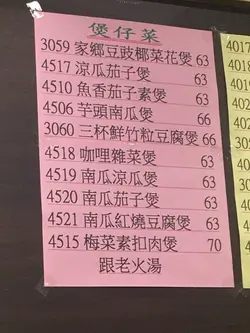 煲仔菜
3059 家鄉豆豉椰菜花煲 63
4517 涼瓜茄子煲 63
4510 魚香茄子素煲 63
4506 芋頭南瓜煲 66
3060 三杯鮮竹粒豆腐煲 66
4518 咖哩雜菜煲 63
4519 南瓜涼瓜煲 63
4520 南瓜茄子煲 63
4521 南瓜紅燒豆腐煲 63
4515 梅菜素扣肉煲 70
跟老火湯
4017
4018